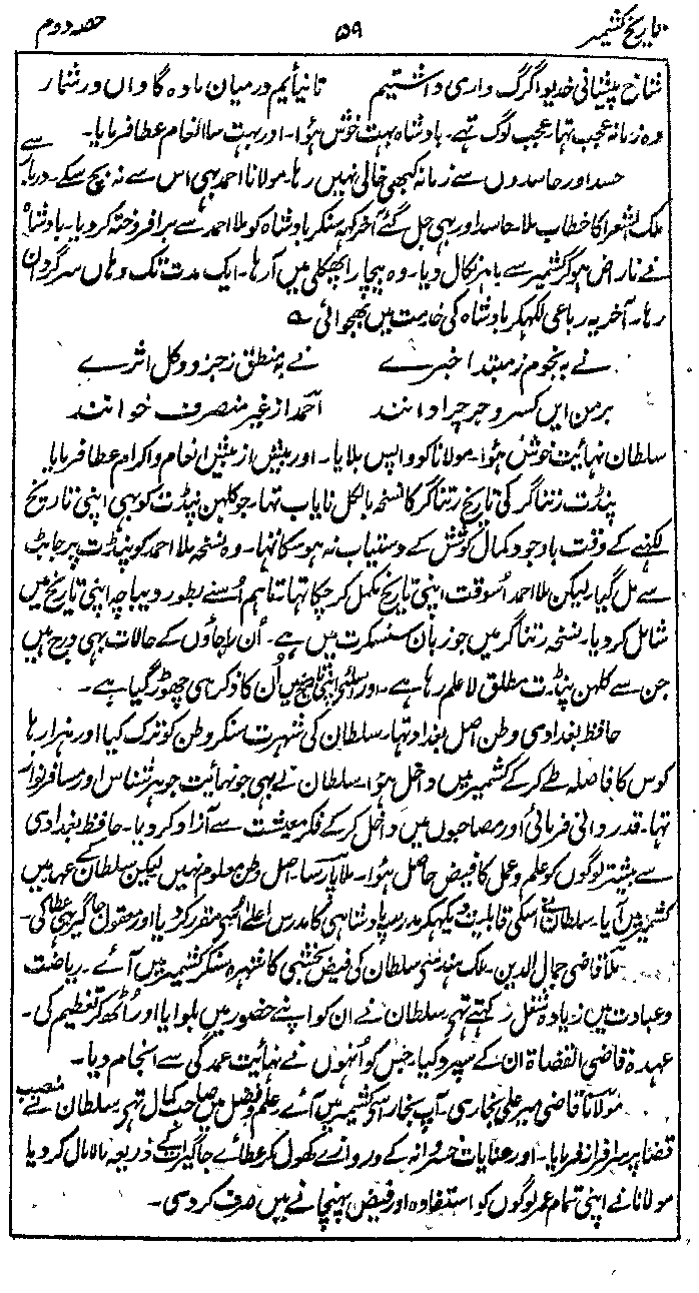 تاریخ کشمیر ۵۹ حصہ دوم
شاخ پیشانی خدیوا گرگ واری داشتیم تانیأیم درمیان مادہ گاواں در شمار
وہ زمانہ عجب تہا۔ عجب لوگ تہے۔ بادشاہ بہت خوش ہؤا۔ اور بہت سا انعام عطا فرمایا۔
حسد اور حاسدوں سے زمانہ کبھی خالی نہیں رہا۔ مولانا احمد بہی اس سے نہ بچ سکے۔ دربار سے
ملک الشعرا کا خطاب ملا۔ حاسد اور بہی جل گئے آخر کہہ سنکر بادشاہ کو ملا احمد سے برافروختہ کردیا۔ بادشاہ
نے ناراض ہوکر کشمیر سے باہر نکال دیا۔ وہ بیچارا پکھلی میں آرہا۔ ایک مدت تک وہاں سرگردان
رہا۔ آخر یہ رباعی لکھکر بادشاہ کی خدمت میں بھجوائی ؎
نے بہ نجوم ز مبتدا خبرے نے بہ منطق ز جزو و کل اثرے
بر من ایں کسر و جر چرا دانند احمد از غیر منصرف خوانند
سلطان نہائیت خوش ہؤا۔ مولانا کو واپس بلایا۔ اور بیش از بیش انعام و اکرام عطا فرمایا
پنڈت رتناگر کی تاریخ رتناگر کا نسخہ بالکل نایاب تہا۔ جو کلہن پنڈت کو بہی اپنی تاریخ
لکہنے کے وقت باوجود کمال کوشش کے دستیاب نہ ہوسکا تہا۔ وہ نسخہ ملا احمد کو پنڈت پرجابٹ
سے مل گیا۔ لیکن ملا احمد اُسوقت اپنی تاریخ مکمل کر چکا تہا تاہم اُسنے بطور دیباچہ اپنی تاریخ میں
شامل کردیا۔ نسخہ رتناگر میں جو زبان سنسکرت میں ہے۔ اُن راجاؤں کے حالات بہی درج ہیں
جن سے کلہن پنڈت مطلق لاعلم رہا ہے۔ اور اسلئے اپنی تاریخ میں اُن کا ذکر ہی چھوڑ گیا ہے۔
حافظ بغدادی وطن اصل بغداد تہا۔ سلطان کی شہرت سنکر وطن کو ترک کیا اور ہزارہا
کوس کا فاصلہ طے کرکے کشمیر میں داخل ہؤا۔ سلطان نے بہی جو نہائیت جوہر شناس اور مسافر نواز
تہا۔ قدردانی فرمائی اور مصاحبوں میں داخل کرکے فکر معیشت سے آزاد کردیا۔ حافظ بغدادی
سے بیشتر لوگوں کو علم و عمل کا فیض حاصل ہؤا۔ ملا پارسا۔ اصل وطن معلوم نہیں لیکن سلطان کے عہد میں
کشمیر میں آیا۔ سلطان نے اسکی قابلیت دیکہکر مدرسہ پادشاہی کا مدرس اعلےٰ اُسے ہی مقرر کردیا اور معقول جاگیر بھی عطا کی۔
ملا قاضی جمال الدین۔ ملک ہند سے سلطان کی فیض بخشی کا شہرہ سنکر کشمیر میں آئے۔ ریاضت
و عبادت میں زیادہ شغل رکہتے تہے سلطان نے ان کو اپنے حضور میں بلوایا اور اُٹھکر تعظیم کی۔
عہدہ قاضی القضاۃ ان کے سپرد کیا۔ جس کو اُنہوں نے نہائیت عمدگی سے انجام دیا۔
مولانا قاضی میر علی بخاری۔ آپ بخارا سے کشمیر میں آئے۔ علم و فضل میں صاحب کمال تہے سلطان نے منصب
قضا پر سرافراز فرمایا۔ اور عنایات خسروانہ کے دروازے کھول کر عطائے جاگیر کے ذریعہ مالامال کردیا
مولانا نے اپنی تمام عمر لوگوں کو استفادہ اور فیض پہنچانے میں صرف کردی۔